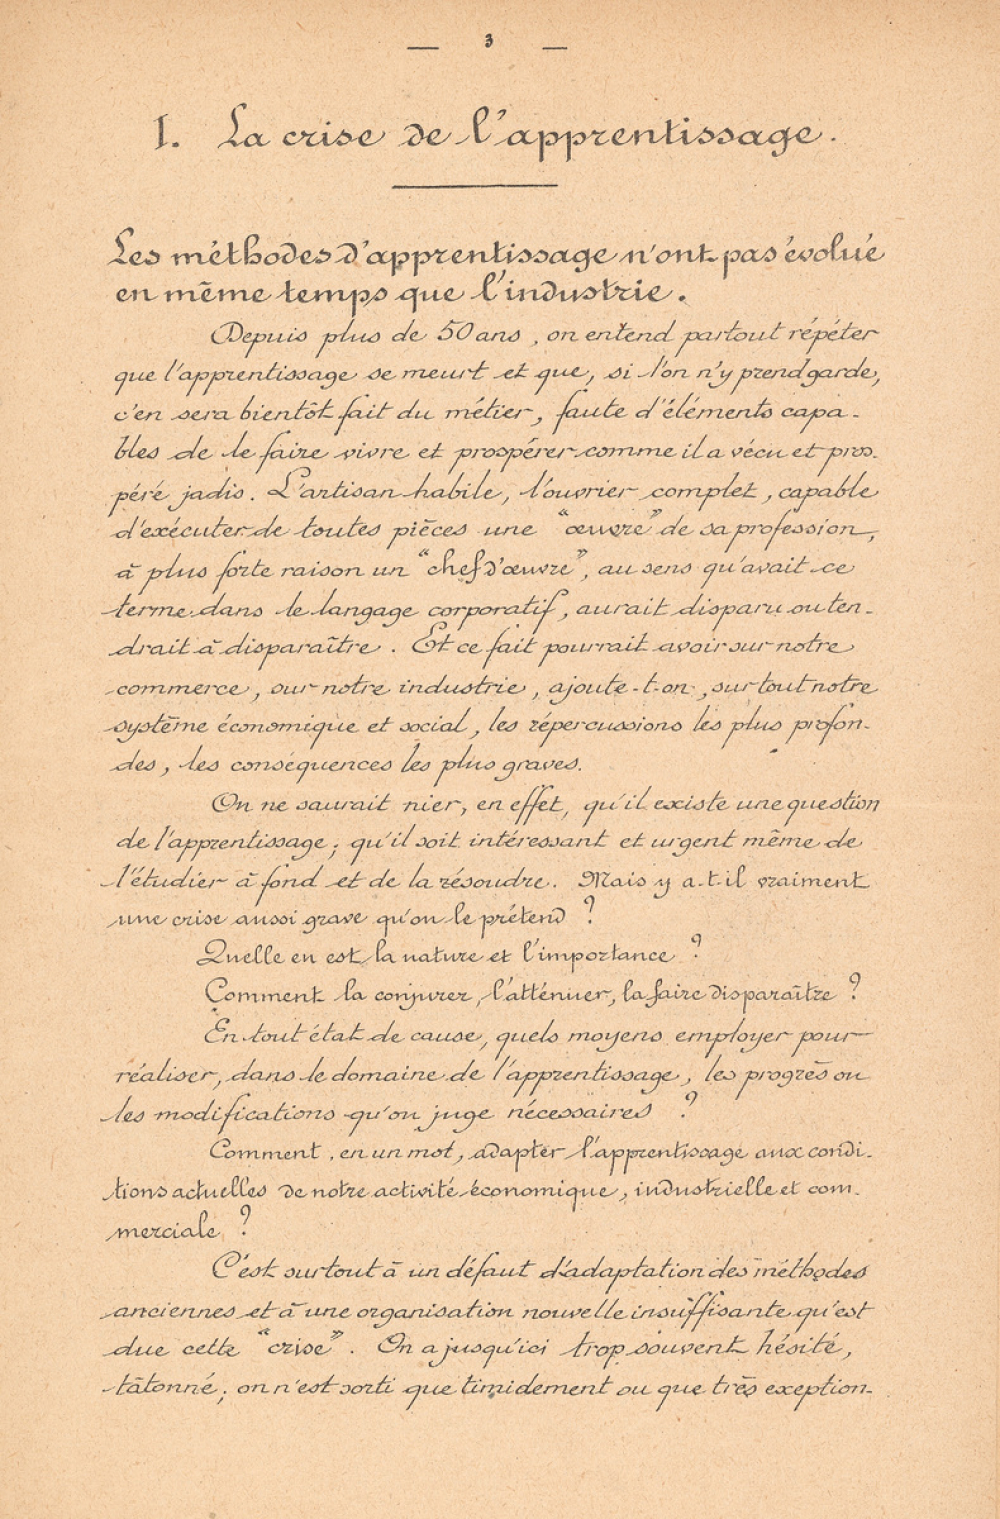 — 3 —
I. La crise de l'apprentissage.
Les méthodes d'apprentissage n'ont pas évolué
en même temps que l'industrie.
Depuis plus de 50 ans, on entend partout répéter
que l'apprentissage se meurt et que, si l'on n'y prend garde,
c'en sera bientôt fait du métier, faute d'éléments capa-
bles de le faire vivre et prospérer comme il a vécu et pros-
péré jadis. L'artisan habile, l'ouvrier complet, capable
d'exécuter de toutes pièces une "œuvre" de sa profession,
à plus forte raison un "chef d'œuvre", au sens qu'avait ce
terme dans le langage corporatif, aurait disparu ou ten-
drait à disparaître. Et ce fait pourrait avoir sur notre
commerce, sur notre industrie, ajoute-t-on, sur tout notre
système économique et social, les répercussions les plus profon-
des, les conséquences les plus graves.
On ne saurait nier, en effet, qu'il existe une question
de l'apprentissage; qu'il soit intéressant et urgent même de
l'étudier à fond et de la résoudre. Mais y a-t-il vraiment
une crise aussi grave qu'on le prétend ?
Quelle en est la nature et l'importance ?
Comment la conjurer, l'atténuer, la faire disparaître ?
En tout état de cause, quels moyens employer pour
réaliser, dans le domaine de l'apprentissage, les progrès ou
les modifications qu'on juge nécessaires ?
Comment, en un mot, adapter l'apprentissage aux condi-
tions actuelles de notre activité économique, industrielle et com-
merciale ?
C'est surtout à un défaut d'adaptation des méthodes
anciennes et à une organisation nouvelle insuffisante qu'est
due cette "crise". On a jusqu'ici trop souvent hésité,
tâtonné; on n'est sorti que timidement ou que très exeption-